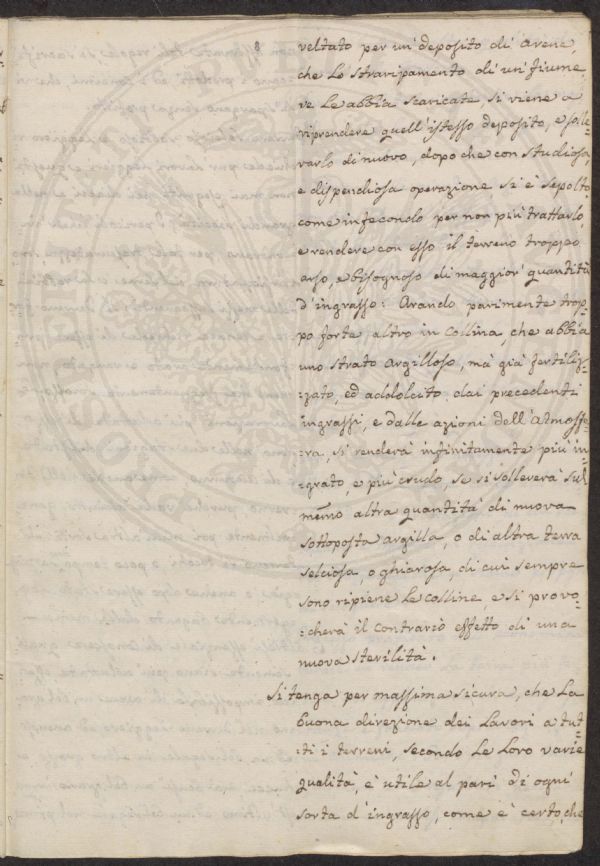 8
veltato per un' deposito di arene,
che lo straripamento di un fiume
ve le abbia scaricate, si viene a
riprendere quell'istesso deposito, e solle-
varlo di nuovo, dopo che con studiosa,
e dispendiosa operazione si è sepolto
come infecondo per non più trattarlo,
e rendere con esso il terreno troppo
arso, e bisognoso di maggior quantità
d'ingrasso: Arando parimente trop-
po forte, altro in Collina, che abbia
uno strato argilloso, mà già fertiliz-
:zato, ed addolcito dai precedenti
ingrassi, e dalle azioni dell'Atmosfe-
:ra, si renderà infinitamente più in-
:grato, e più crudo, se si solleverà sul
medmo altra quantità di nuova
sottoposta argilla, o di altra terra
selciosa, o ghiarosa, di cui sempre
sono ripiene le Colline, e si provo-
:cherà il contrario effetto di una
nuova sterilità.
Si tenga per massima sicura, che la
buona direzione dei Lavori a tut-
:ti i terreni, secondo le loro varie
qualità, è utile al pari di ogni
sorta d'ingrasso, come è certo, che